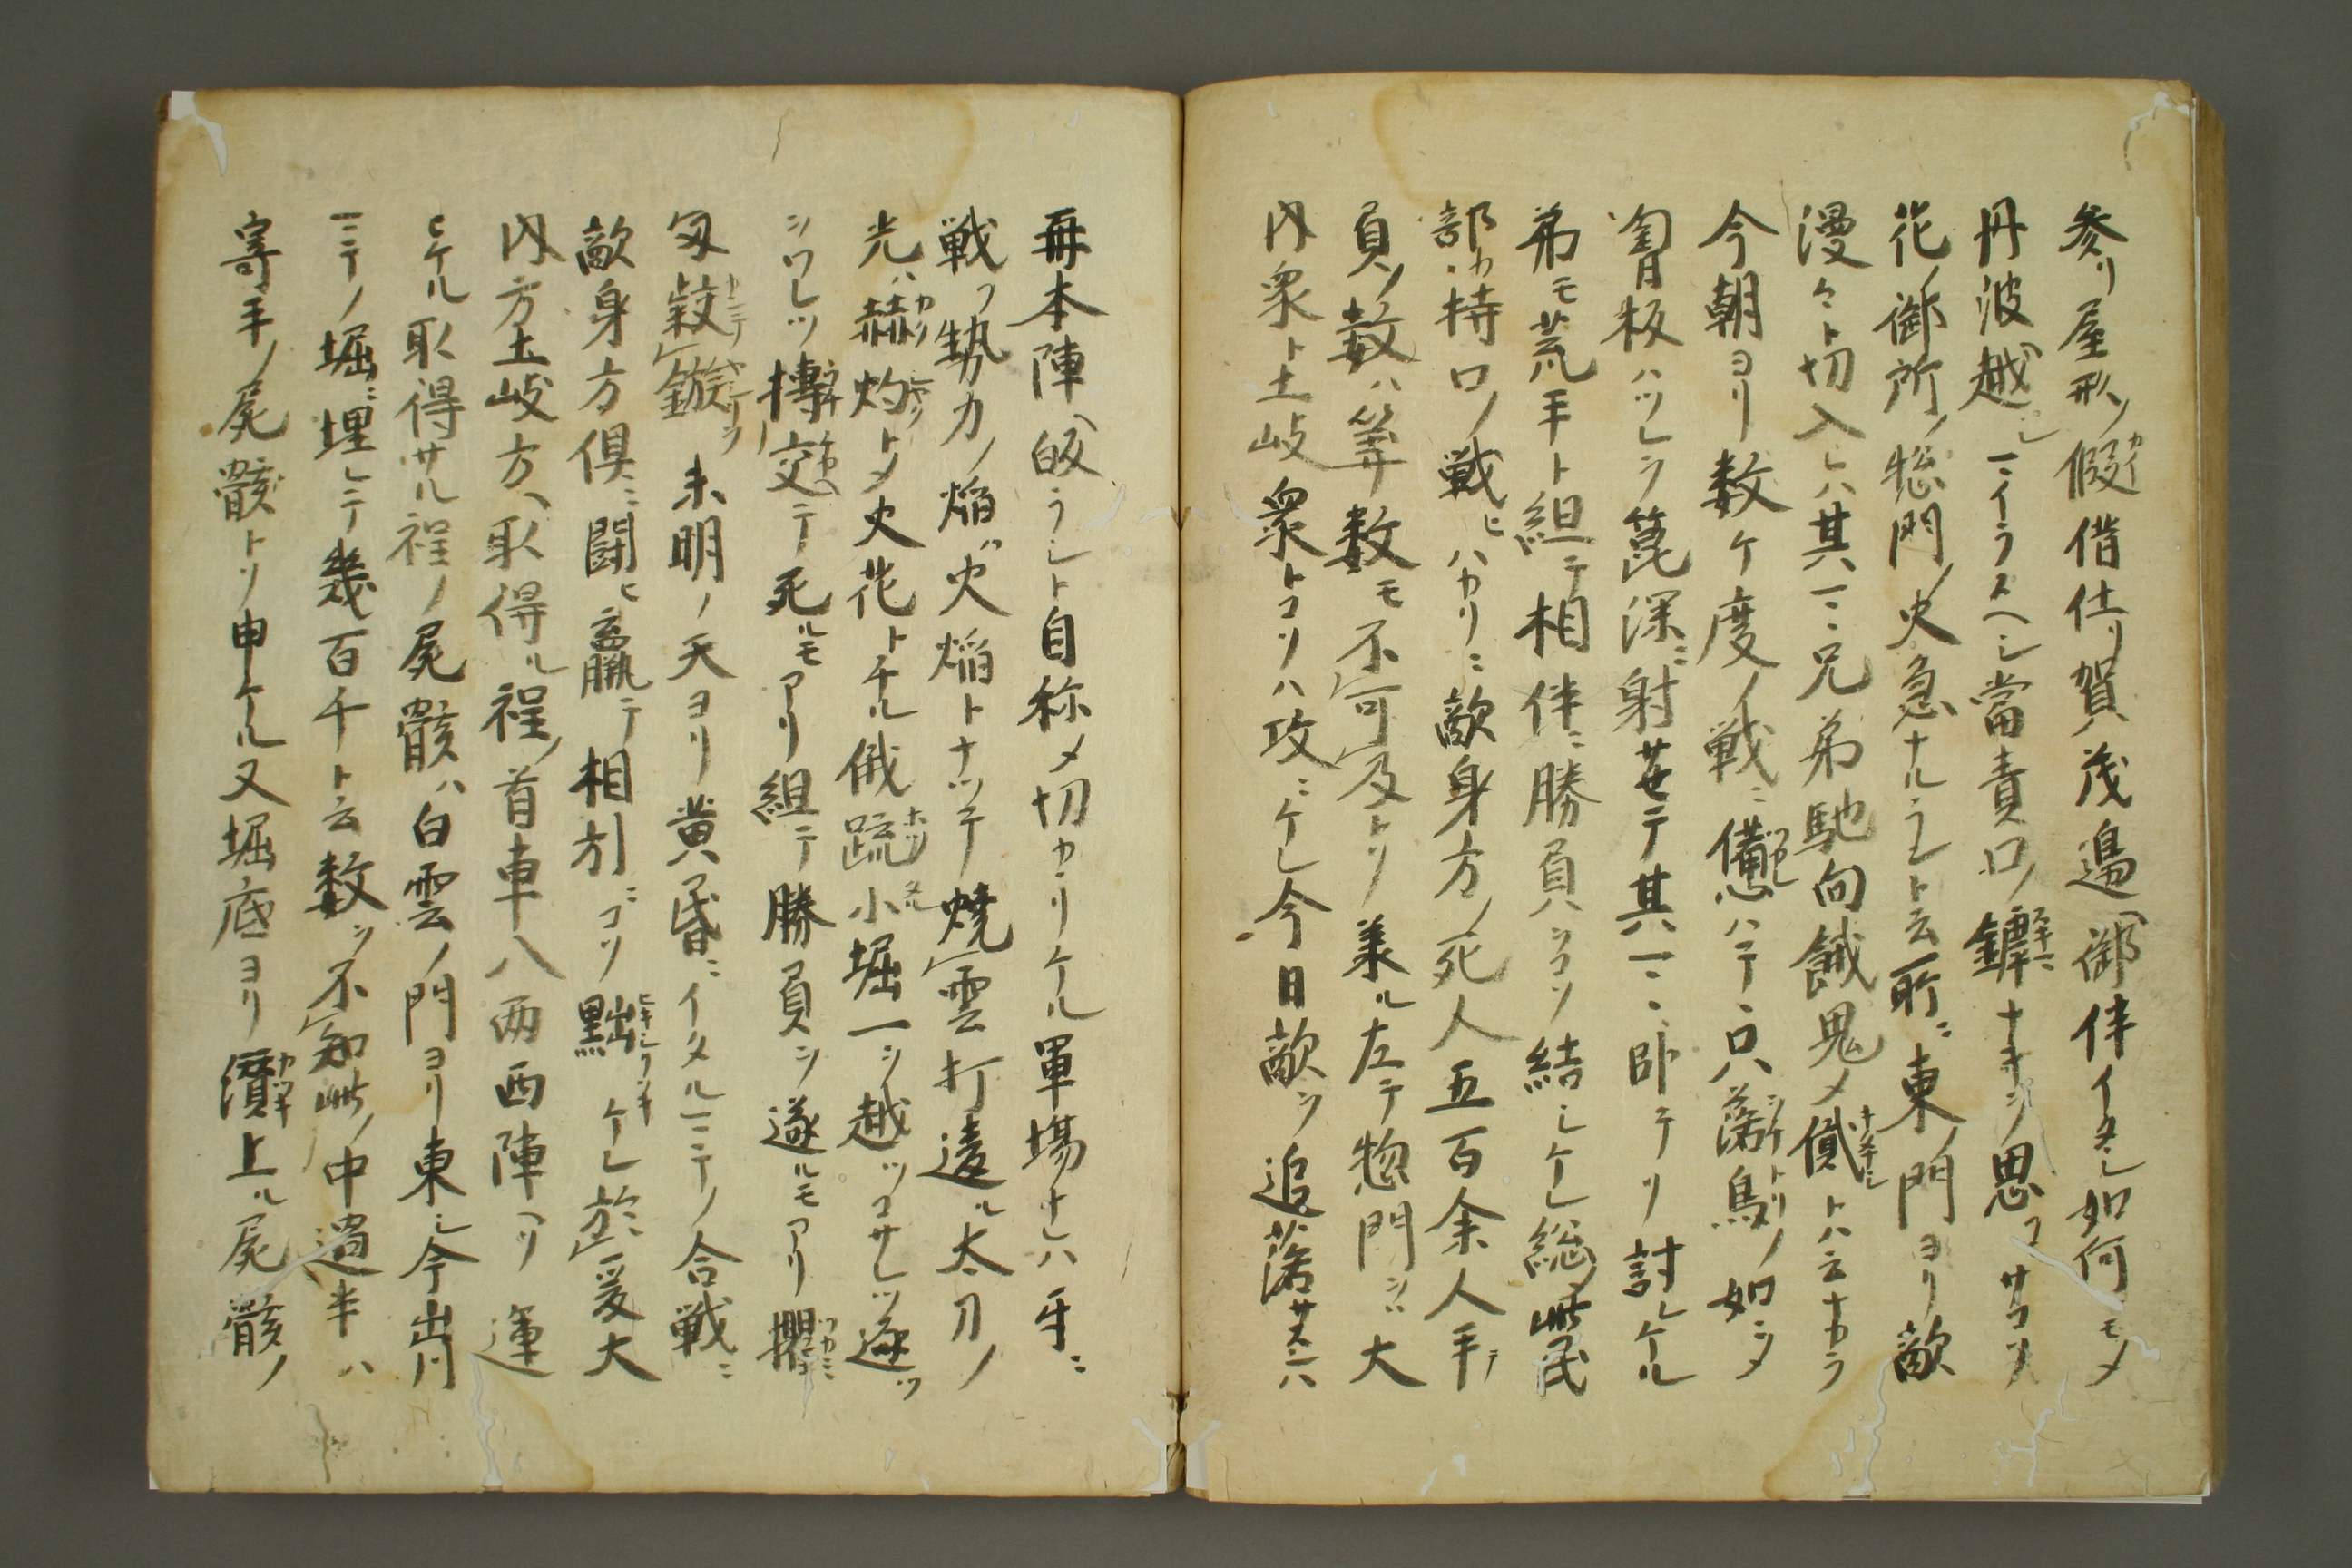 参リ屋形ノ假借仕リ賀茂邉ヘ御伴イタシ如何モメ
丹波ヘ越シマイラスヘシ當責口ノ鏬ナキヲ思コサコソ
花ノ御所ノ惣門ノ火急ナルラシト云所ニ東ノ門ヨリ敵
漫々ト切入レハ其マヽ兄弟馳向餓鬼メトハ云ナカラ
今朝ヨリ数ケ度ノ戦ニ憊ハテヽ只落鳥ノ如シメ
胷板ハツレヲ箆深ニ射サセテ其マヽ卧テソ討レケル
弟モ荒手ト組テ相伴ニ勝負ハシコソ結シケレ総メ此
部カ持口ノ戦ヒハカリニ敵身方ノ死人五百余人手
負ノ数ハ筭数モ不可及トソ美ル左テ惣門ヲハ大
内衆ト土岐衆トコソハ攻ニケレ今日敵ヲ追落サスハ
再本陣ヘ皈ラシト自称メ切カヽリケル軍場ナレハ牙ニ
戦フ勢力ノ焔火焔トナツテ焼雲打違ル太刀ノ
光ハ赫灼トメ火花トチル俄䟽小堀一ヲ越ツコサレツ逐ツ
ヲワレツ摶交テ死ルモアリ組テ勝負ヲ遂ルモアリ攫ニ
匁鏃未明ノ天ヨリ黄昏ニイタルマテノ合戦ニ
敵身方倶ニ闘ヒ羸テ相引ニコソ黜ケレ於爰大
内方土岐方ヘ取得ル程ノ首車八両西陣ヘソ運
ヒケル取得サル程ノ屍骸ハ白雲ノ門ヨリ東シ今出川
マテノ堀ニ埋レテ幾百千ト云数ヲ不知此ノ中過半ハ
寄手ノ屍骸トソ申ケル又堀底ヨリ上ル屍骸ノ